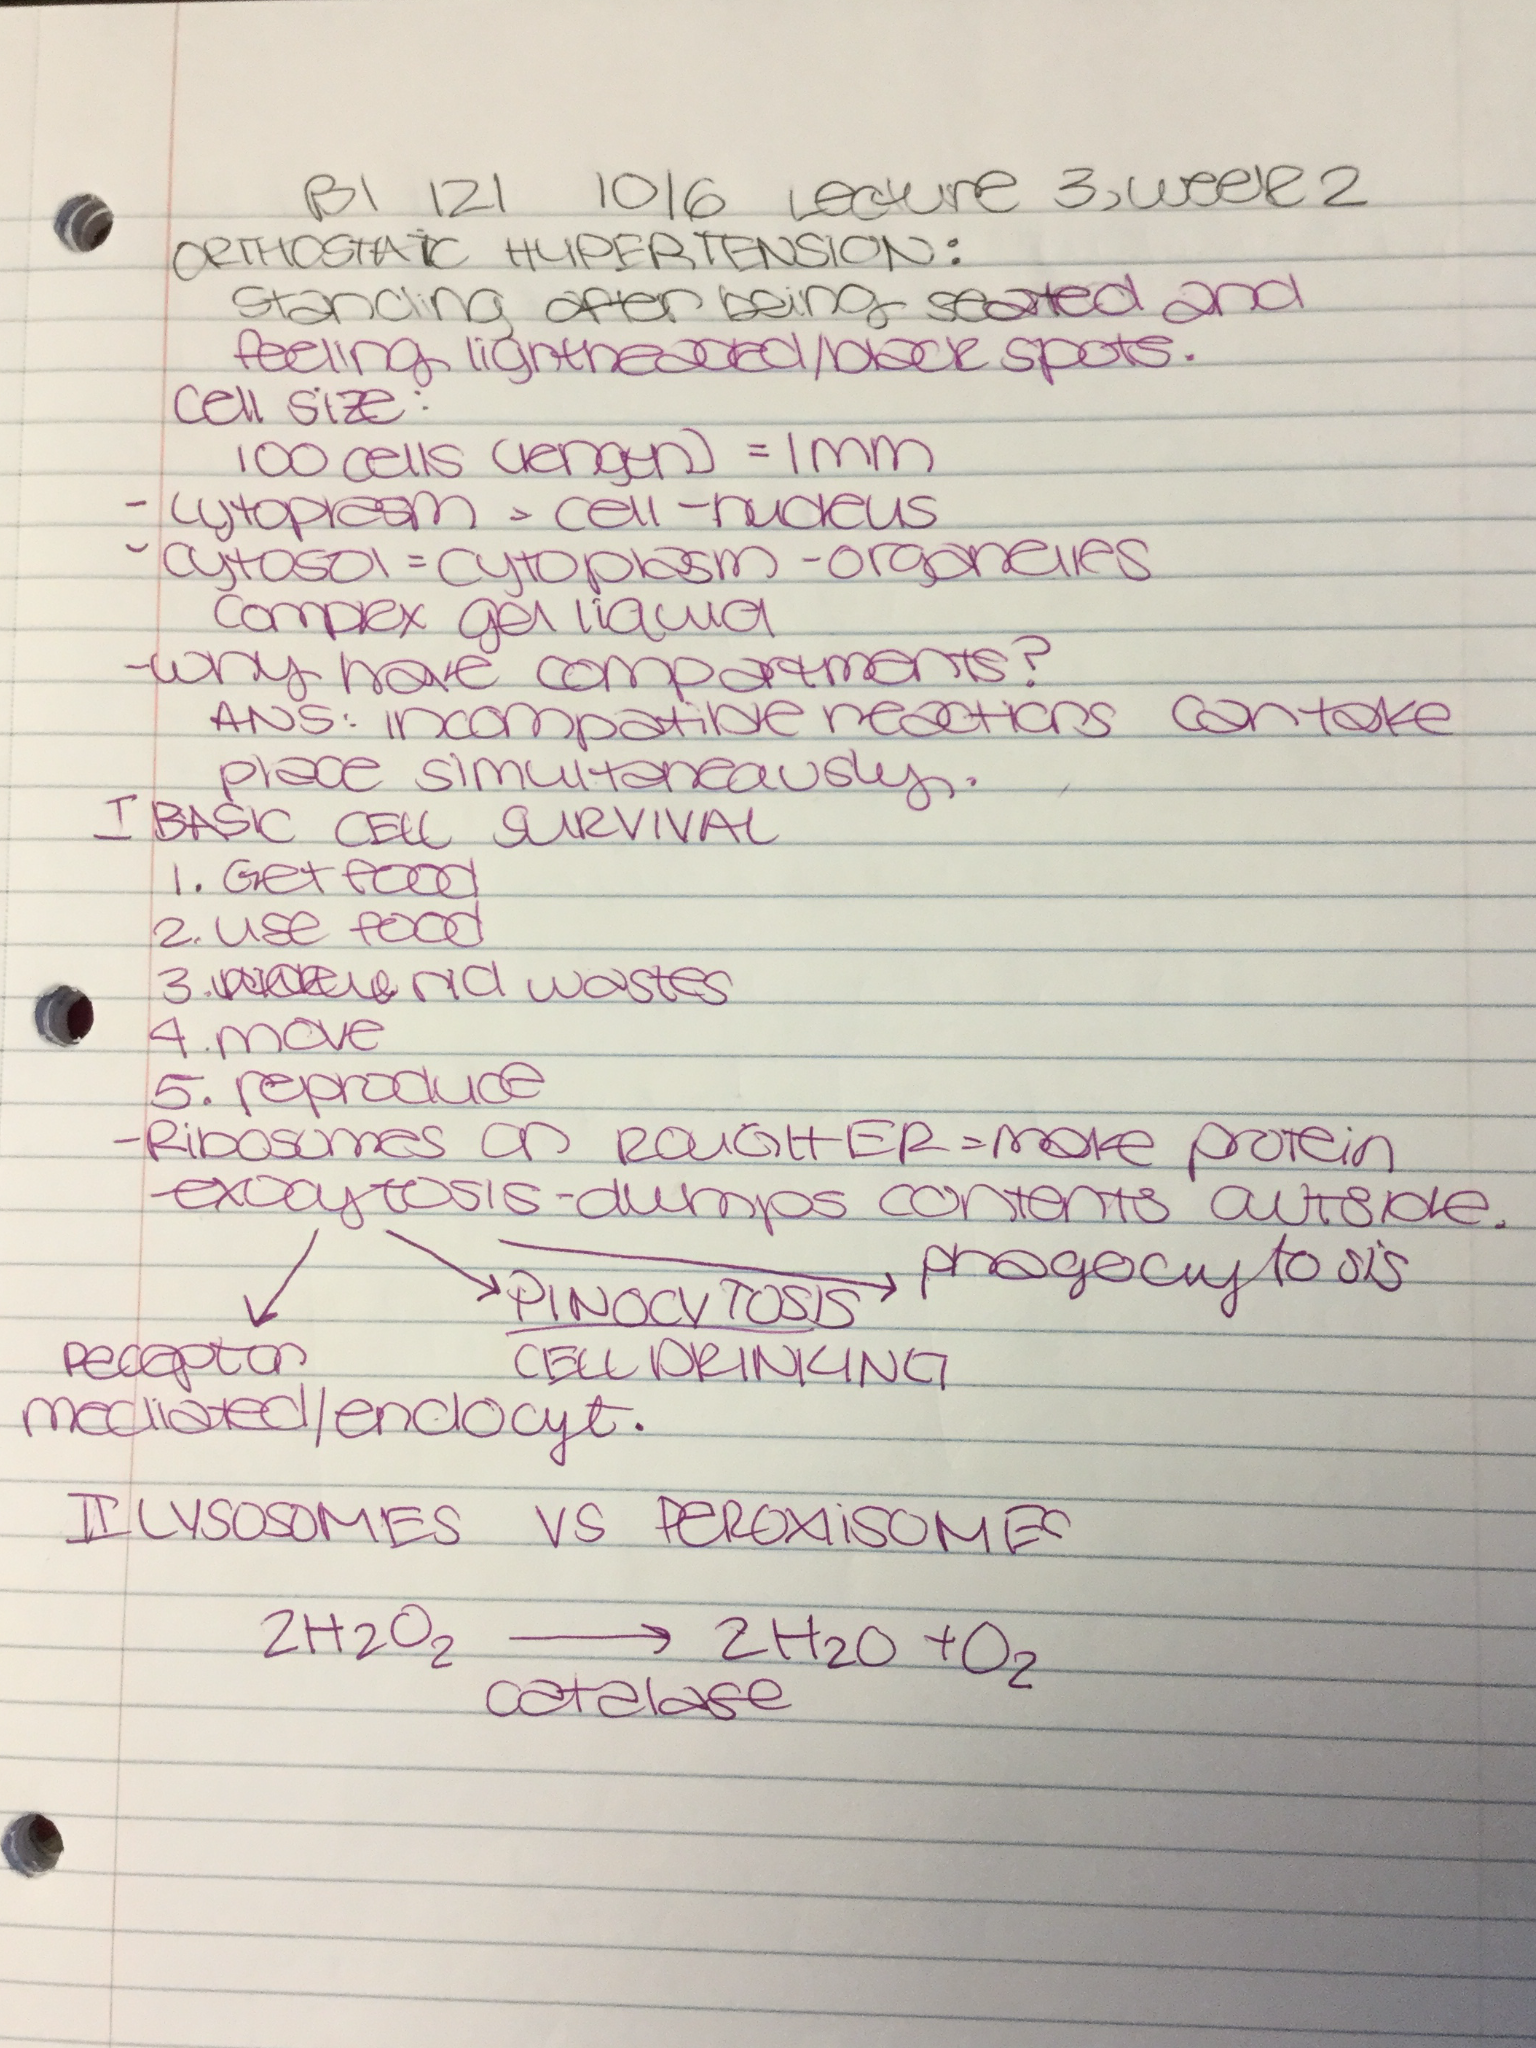 BI 121 10/6 Lecture 3, week 2
ORTHOSTATIC HYPERTENSION:
standing after being seated and
feeling lightheaded/black spots.
Cell size:
100 cells (length) = 1mm
- cytoplasm = cell - nucleus
- cytosol = cytoplasm - organelles
complex gel liquid
- why have compartments?
ANS: incompatible reactions can take
place simultaneously.
I BASIC CELL SURVIVAL
1. Get food
2. use food
3. rid wastes
4. move
5. reproduce
- Ribosomes on ROUGH ER = make protein
- exocytosis - dumps contents outside.
phagocytosis
PINOCYTOSIS
receptor CELL DRINKING
mediated/endocyt.
II LYSOSOMES VS PEROXIISOMES
2H2O2 → 2H2O + O2
catalase